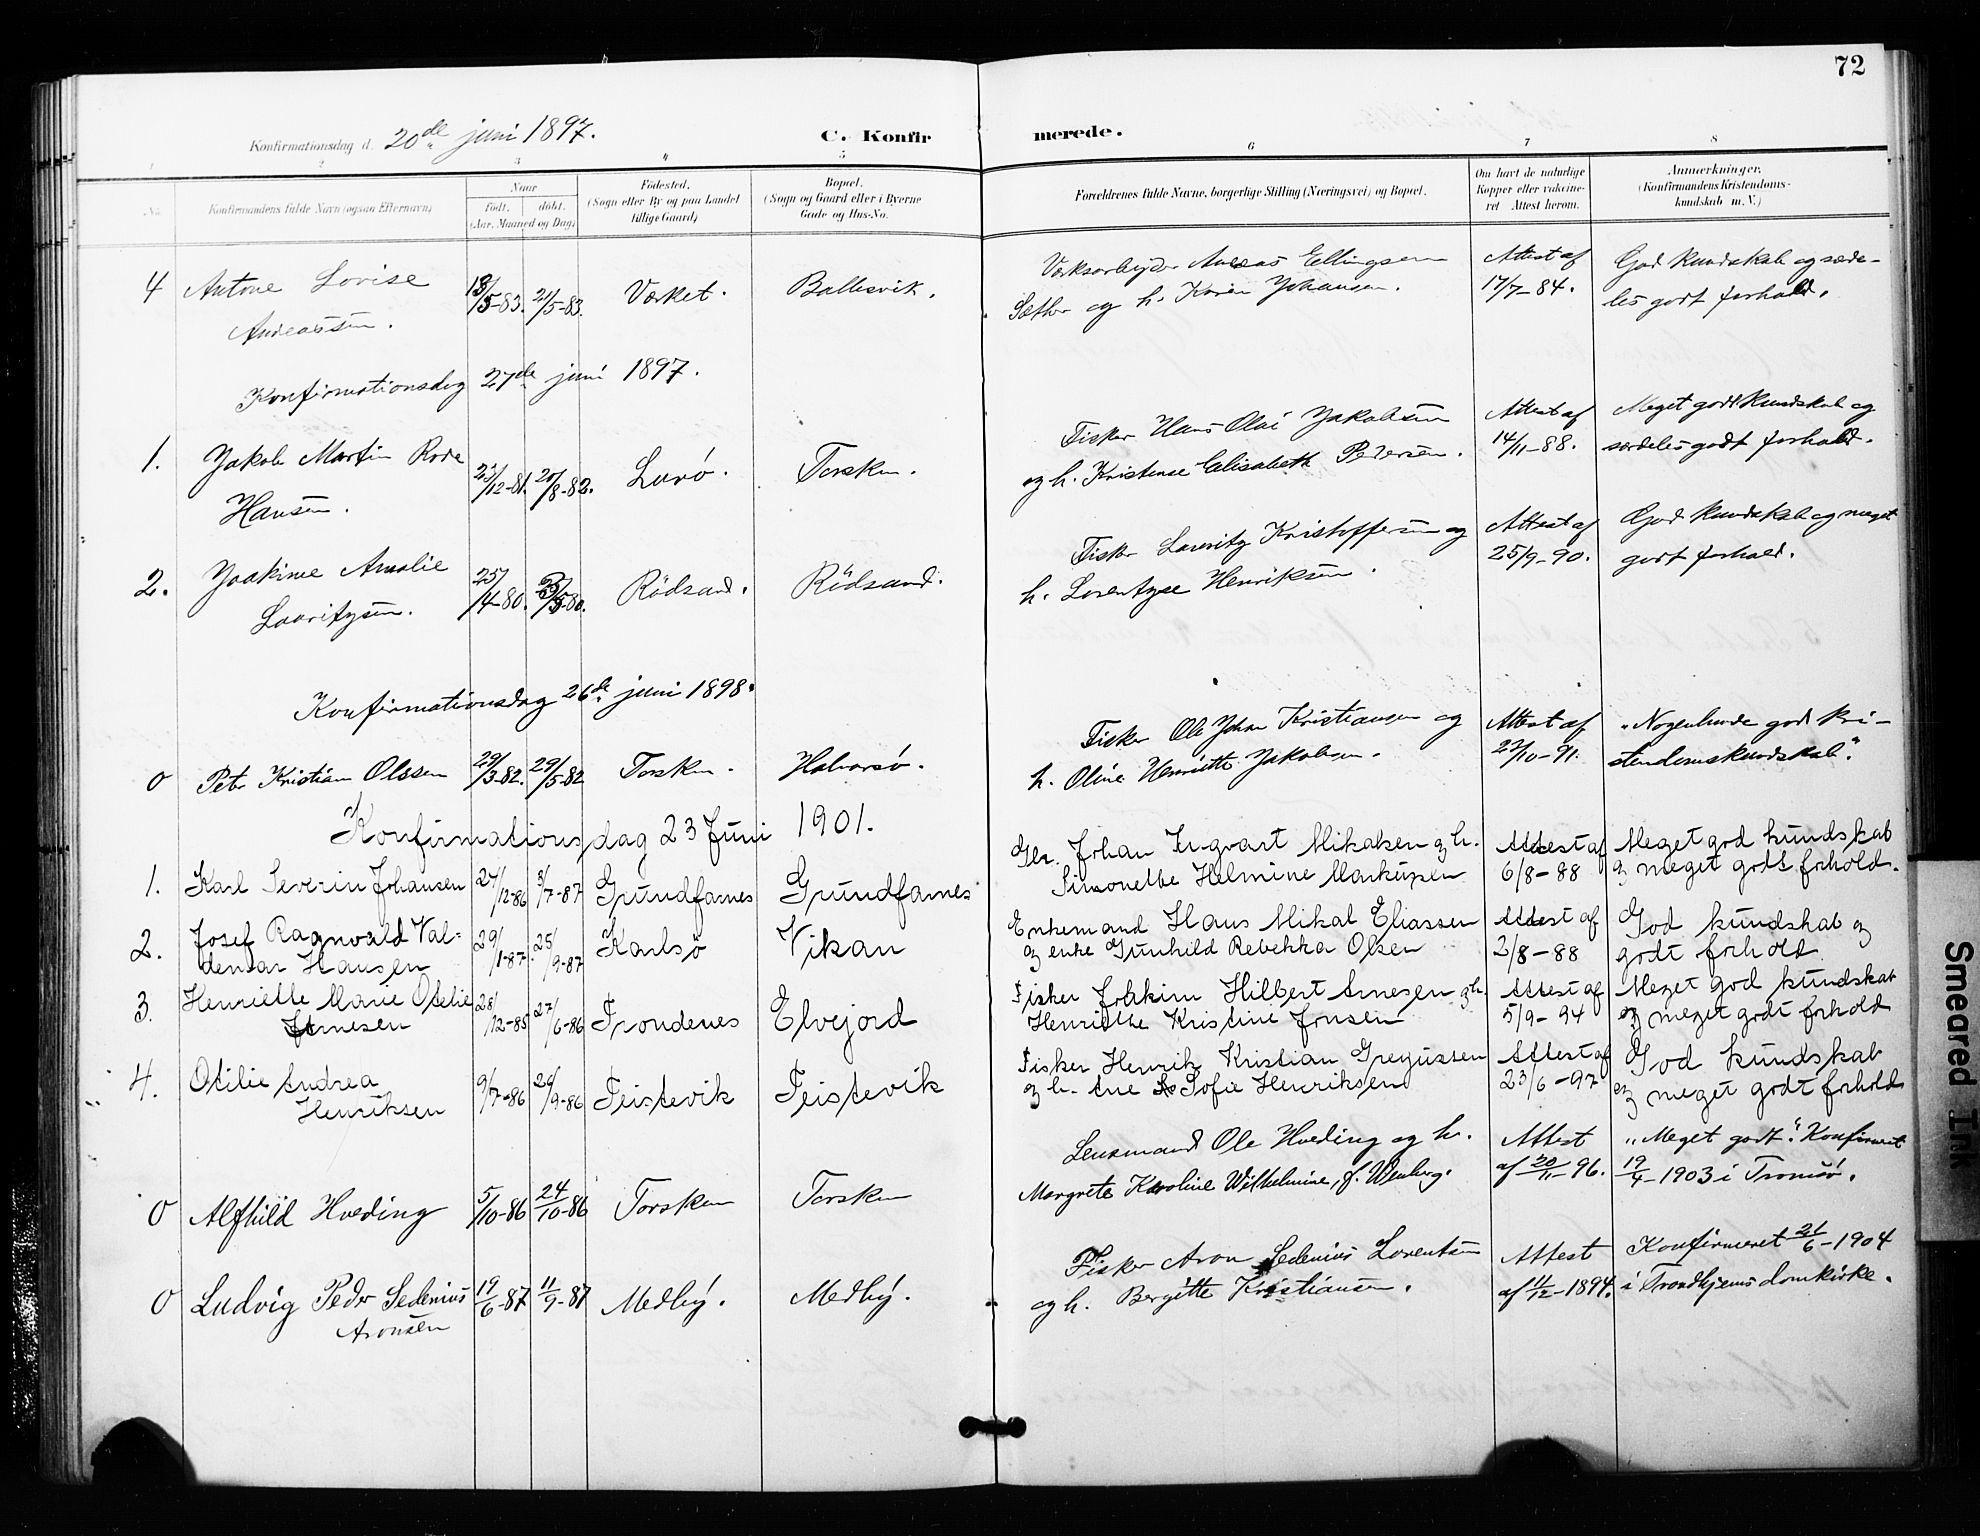 72
Konfirmationsdag d. 20de juni 1897.
C. Konfirmerede.
1 2 3 4 5 6 7 8
No.
Konfirmandens fulde Navn (ogsaa Efternavn)
Naar
født. døbt.
(Aar, Maaned og Dag)
Fødested.
(Sogn eller By og paa Landet
tillige Gaard)
Bopæl.
(Sogn og Gaard eller i Byerne
Gade og Hus-No.
Forældrenes fulde Navne, borgerlige Stilling (Næringsvei) og Bopæl.
Om havt de naturlige
Kopper eller vaksine-
ret Attest herom.
Anmærkninger.
(Konfirmandens Kristendoms-
kundskab m. V.)
4 Antone Lovise 13/5-83. 21/5-83. Værket. Ballesvik. Værksarbeyder Andreas Ellingsen Attest af God kundskab og særde-
Andreassen. Sæther og h. Karen Johansen. 17/7-84. les godt forhold.
Konfirmationsdag 27de juni 1897.
1. Jakob Martin Rode 23/12-81. 20/8-82. Lurø. Torsken. Fisker Hans Olai Jakobsen Attest af Meget godt kundskab og
Hansen. og h. Kristense Elisabeth Pedersen. 14/11-88. særdeles godt forhold.
2. Joakime Amalie 25/4-80. 23/5-80. Rödsand. Rödsand. Fisker Lauritz Kristoffersen og Attest af God kundskab og meget
Lauritzsen. h. Lorentze Henriksen. 25/9-90. godt forhold.
Konfirmationsdag 26de juni 1898.
0 Peter Kristian Olssen 29/3-82. 29/5-82 Torsken. Halvarsø. Fisker Ole Johan Kristiansen og Attest af "Nogenlunde god kri-
h. Oline Henriette Jakobsen. 22/10-91. stendomskundskab".
Konfirmationsdag 23 Juni 1901.
1. Karl Severin Johansen 27/12-86 3/7-87 Grundfarnes Grundfarnes Gbr. Johan Ingvart Mikalsen og h. Attest af Meget god kundskab
Simonette Helmine Markussen 6/8-88 og meget godt forhold.
2. Josef Ragnvald Val= 29/1-87. 25/9-87 Karlsö Vikan Enkemand Hans Mikal Eliassen Attest af God kundskab og
demar Hansen og enke Gunhild Rebekka Olsen 2/8-88 godt forhold
3. Henriette Marie Otelie 28/12-85 27/6-86 Trondenes Elvejord Fisker Joakim Hilbert Arnesen og h. Attest af Meget god kundskab
Arnesen Henriette Kristine Jonsen 5/9-94 og meget godt forhold
4. Otilie Andrea 9/7-86 26/9-86 Teistevik Teistevik Fisker Henrik Kristian Gregussen Attest af God kundskab
Henriksen og h. Ane Sofie Henriksen 23/6-97 og meget godt forhold
0 Alfhild Hveding 5/10-86 24/10-86 Torsken Torsken Lensmand Ole Hveding og h. Attest "Meget godt". Konfirmert
Margrete Karoline Wilhelmine, f. Wenberg. af 20/11-96. 19/4-1903 i Tromsö.
0 Ludvig Peder Sedenius 19/6-87 11/9-87 Medby. Medby. Fisker Aron Sedenius Lorentsen Attest Konfirmeret 26/6-1904
Aronsen og h. Bergitte Kristiansen. af 11/12-1894. i Trondhjems domkirke.
Smeared Ink